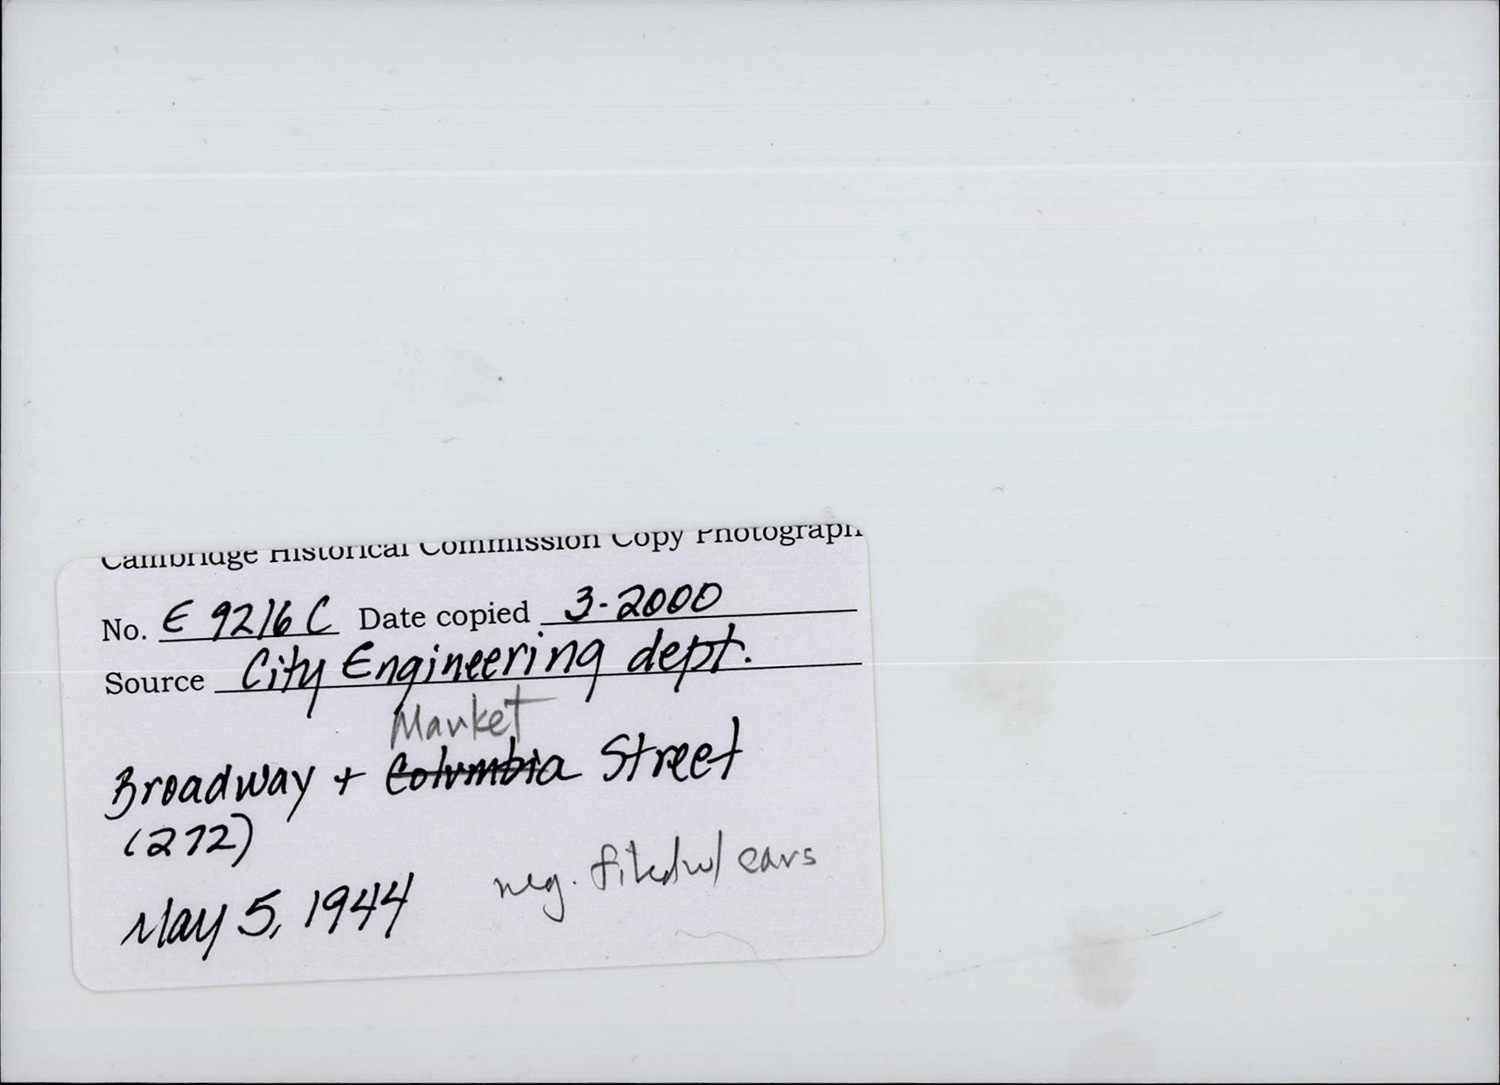 Cambridge Historical Commission Copy Photograph
No. E 9216 C Date copied 3-2000
Source City Engineering dept.
Market
Broadway + Columbia Street
(272)
May 5, 1944
neg. filed w/ cars